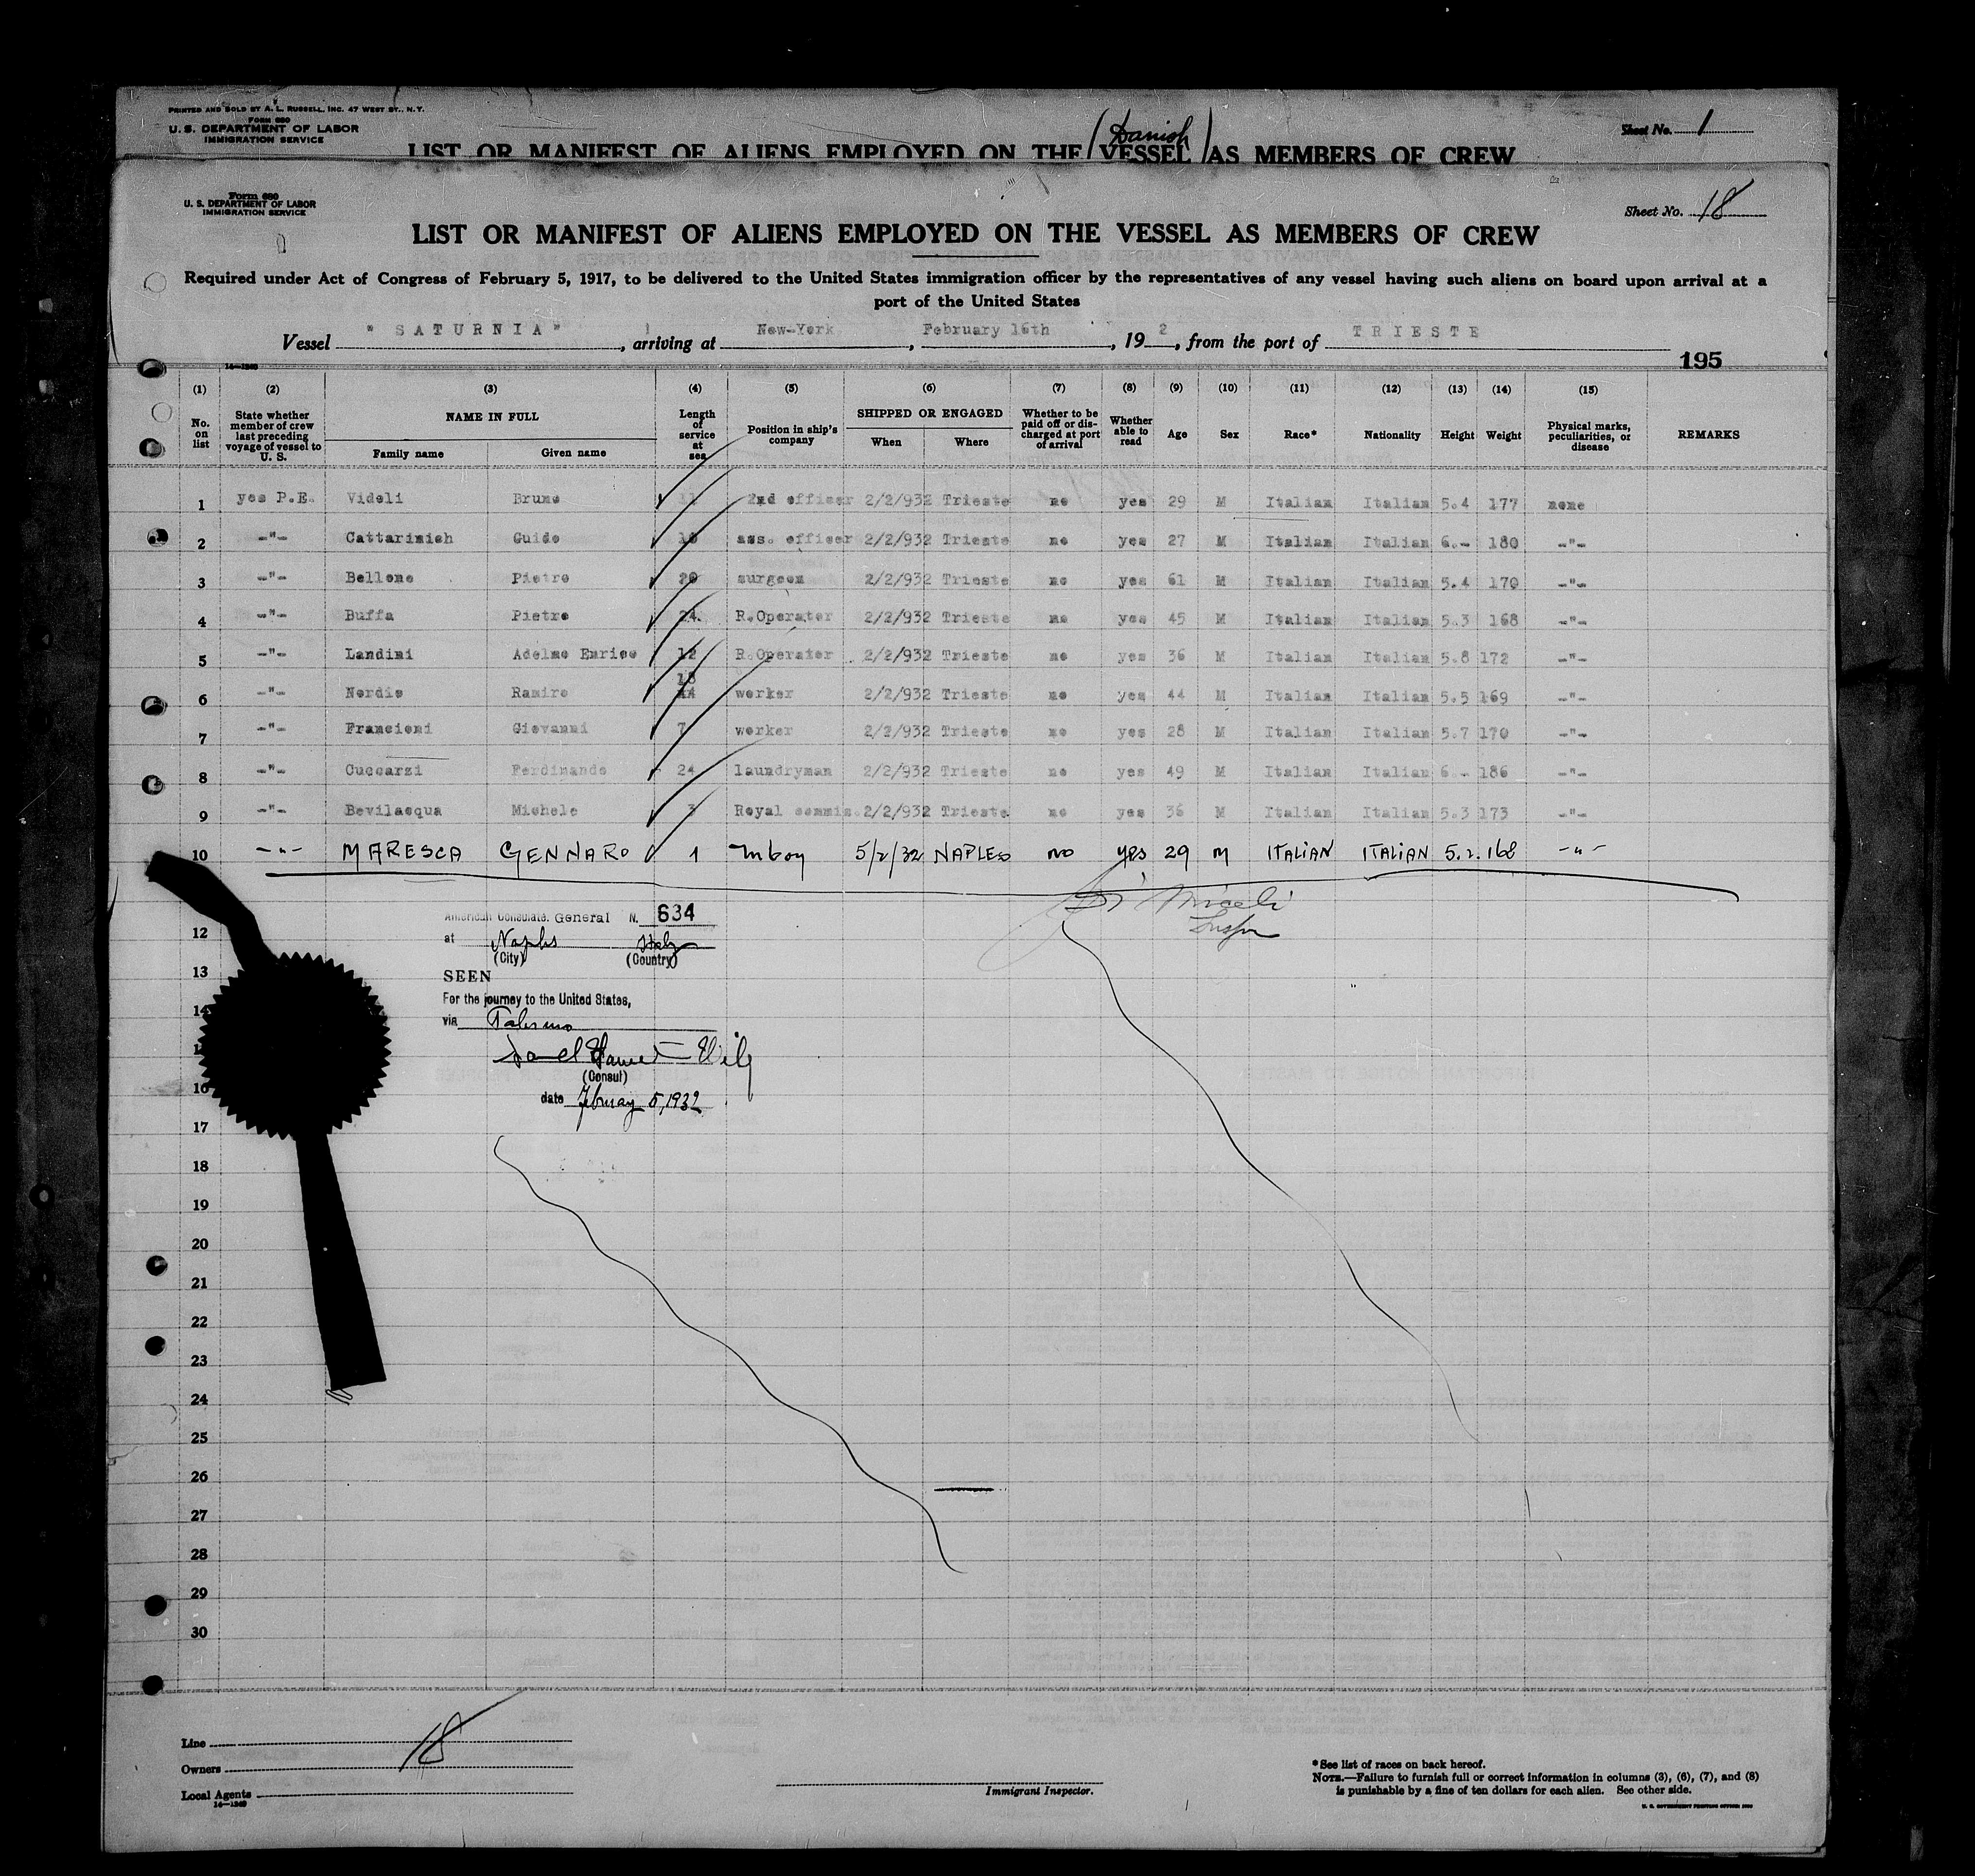 PRINTED AND SOLD BY A. L. RUSSELL, INC. 47 WEST ST., N.Y.
FORM 680
U. S. DEPARTMENT OF LABOR
IMMIGRATION SERVICE
(Danish)
Sheet No. 1
LIST OR MANIFEST OF ALIENS EMPLOYED ON THE VESSEL AS MEMBERS OF CREW
Form 680
U. S. DEPARTMENT OF LABOR
IMMIGRATION SERVICE
Sheet No. 18
LIST OR MANIFEST OF ALIENS EMPLOYED ON THE VESSEL AS MEMBERS OF CREW
Required under Act of Congress of February 5, 1917, to be delivered to the United States immigration officer by the representatives of any vessel having such aliens on board upon arrival at a
port of the United States
Vessel " SATURNIA ", arriving at New-York, February 16th, 192, from the port of TRIESTE
195
14-1249
(1) (2) (3) (4) (5) (6) (7) (8) (9) (10) (11) (12) (13) (14) (15)
No. on list
State whether member of crew last preceding voyage of vessel to U. S.
NAME IN FULL
Family name Given name
Length of service at sea
Position in ship's company
SHIPPED OR ENGAGED
When Where
Whether to be paid off or discharged at port of arrival
Whether able to read
Age Sex Race* Nationality Height Weight
Physical marks, peculiarities, or disease
REMARKS
1 yes P.E. Videli Bruno 11 2nd officer 2/2/932 Trieste no yes 29 M Italian Italian 5.4 177 none
2 -"- Cattarinich Guido ass. officer 2/2/932 Trieste no yes 27 M Italian Italian 6.- 180 -"-
3 -"- Bellone Pietro 20 surgeon 2/2/932 Trieste no yes 61 M Italian Italian 5.4 170 -"-
4 -"- Buffa Pietro 24 R.Operator 2/2/932 Trieste no yes 45 M Italian Italian 5.3 168 -"-
5 -"- Landini Adelmo Enrico 12 R.Operator 2/2/932 Trieste no yes 36 M Italian Italian 5.8 172 -"-
6 -"- Nordio Ramiro 13 worker 2/2/932 Trieste no yes 44 M Italian Italian 5.5 169 -"-
7 -"- Francioni Giovanni 7 worker 2/2/932 Trieste no yes 28 M Italian Italian 5.7 170 -"-
8 -"- Cuccarzi Ferdinando 24 laundryman 2/2/932 Trieste no yes 49 M Italian Italian 6 - 186 -"-
9 -"- Bevilacqua Michele 3 Royal commis. 2/2/932 Trieste no yes 36 M Italian Italian 5.3 173 -"-
10 -"- MARESCA GENNARO 1 mboy 5/2/32 NAPLES no yes 29 M ITALIAN ITALIAN 5.2. 168 -"-
Miceli
American Consulate. General N. 634
12
at Naples Italy
(City) (Country)
13
SEEN
For the journey to the United States,
14
via Palermo
(Consul)
16
date February 5, 1932
17
18
19
20
21
22
23
24
25
26
27
28
29
30
18
Line
Owners
Local Agents
14-1249
Immigrant Inspector.
*See list of races on back hereof.
NOTE.—Failure to furnish full or correct information in columns (3), (6), (7), and (8)
is punishable by a fine of ten dollars for each alien. See other side.